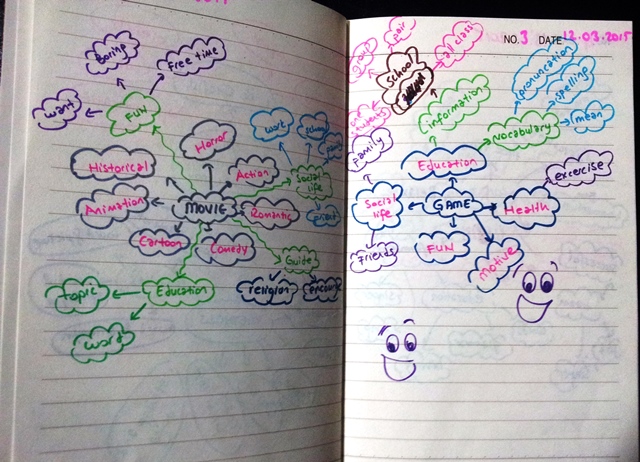 Boring
Free time
want
FUN
Horror
Historical
Action
Animation
MOVIE
Romantic
Cartoon
Comedy
work
school
Social
life
Guide
topic
Education
religion
word
NO. 3 DATE 12.03.2015
group
pair
all class
school
information
pronuncation
spelling
vocabulary
mean
Family
Education
excercise
Social
life
GAME
Health
Friends
FUN
motive